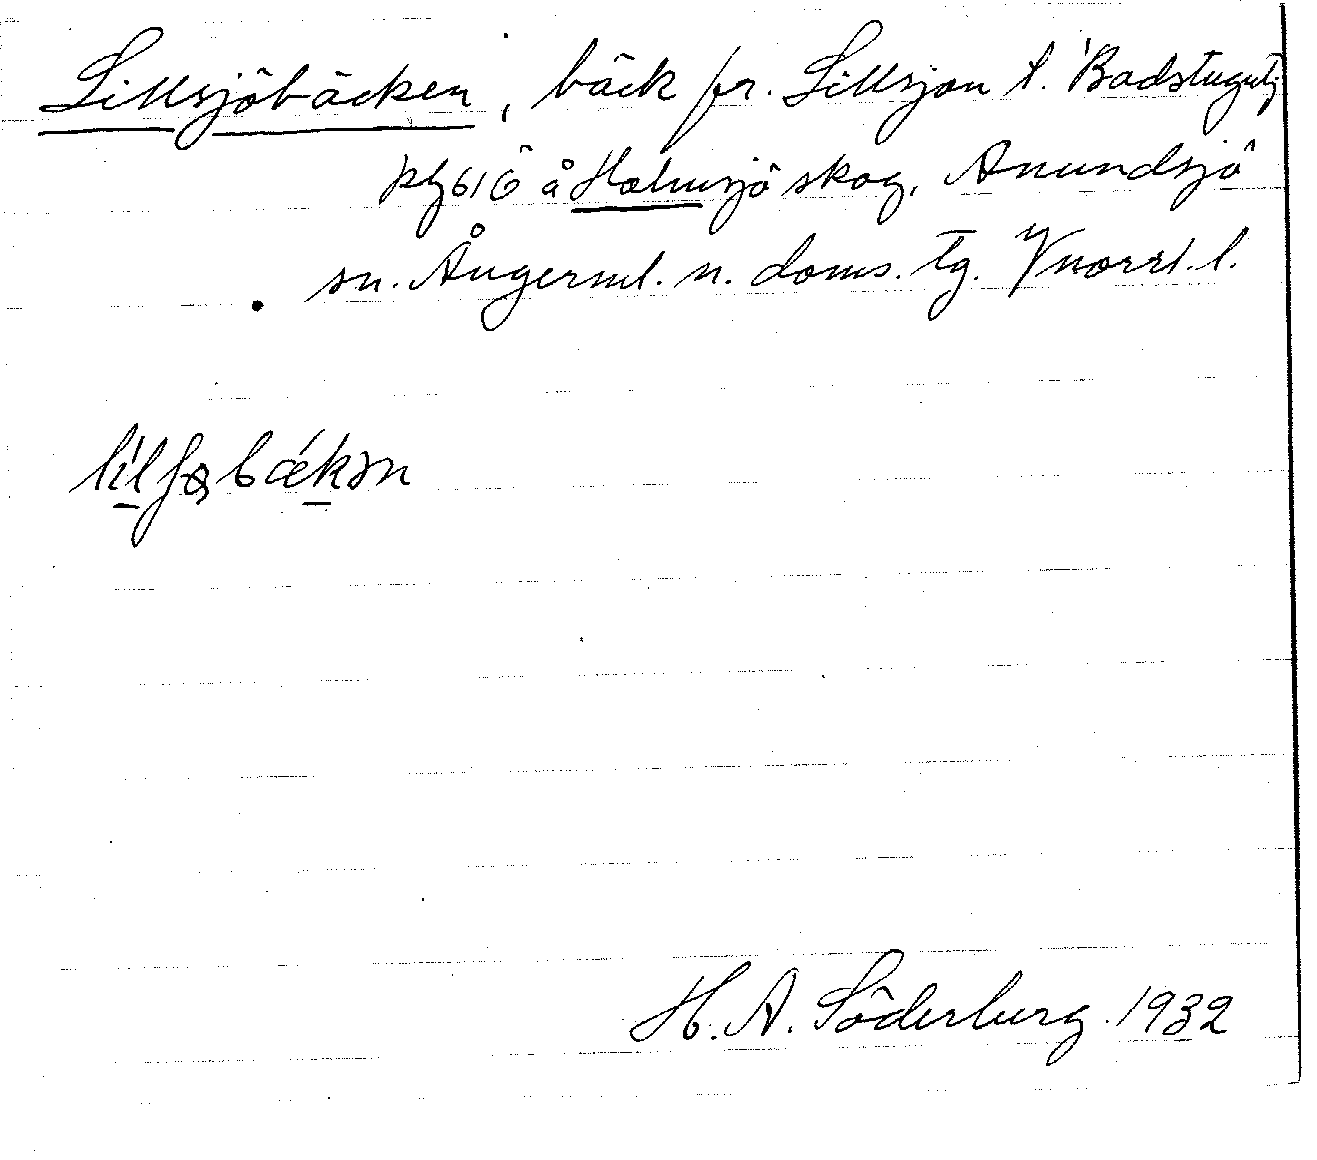 Lillsjöbäcken, bäck fr. Lillsjön t. Badstugutj
å Holmsjö skog, Anundsjö
sn. Ångerml. n. doms. tg. Vnorrl. l.
H. A. Söderberg. 1932